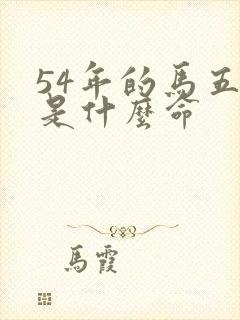 54年的馬五
是什麼命
馬霞